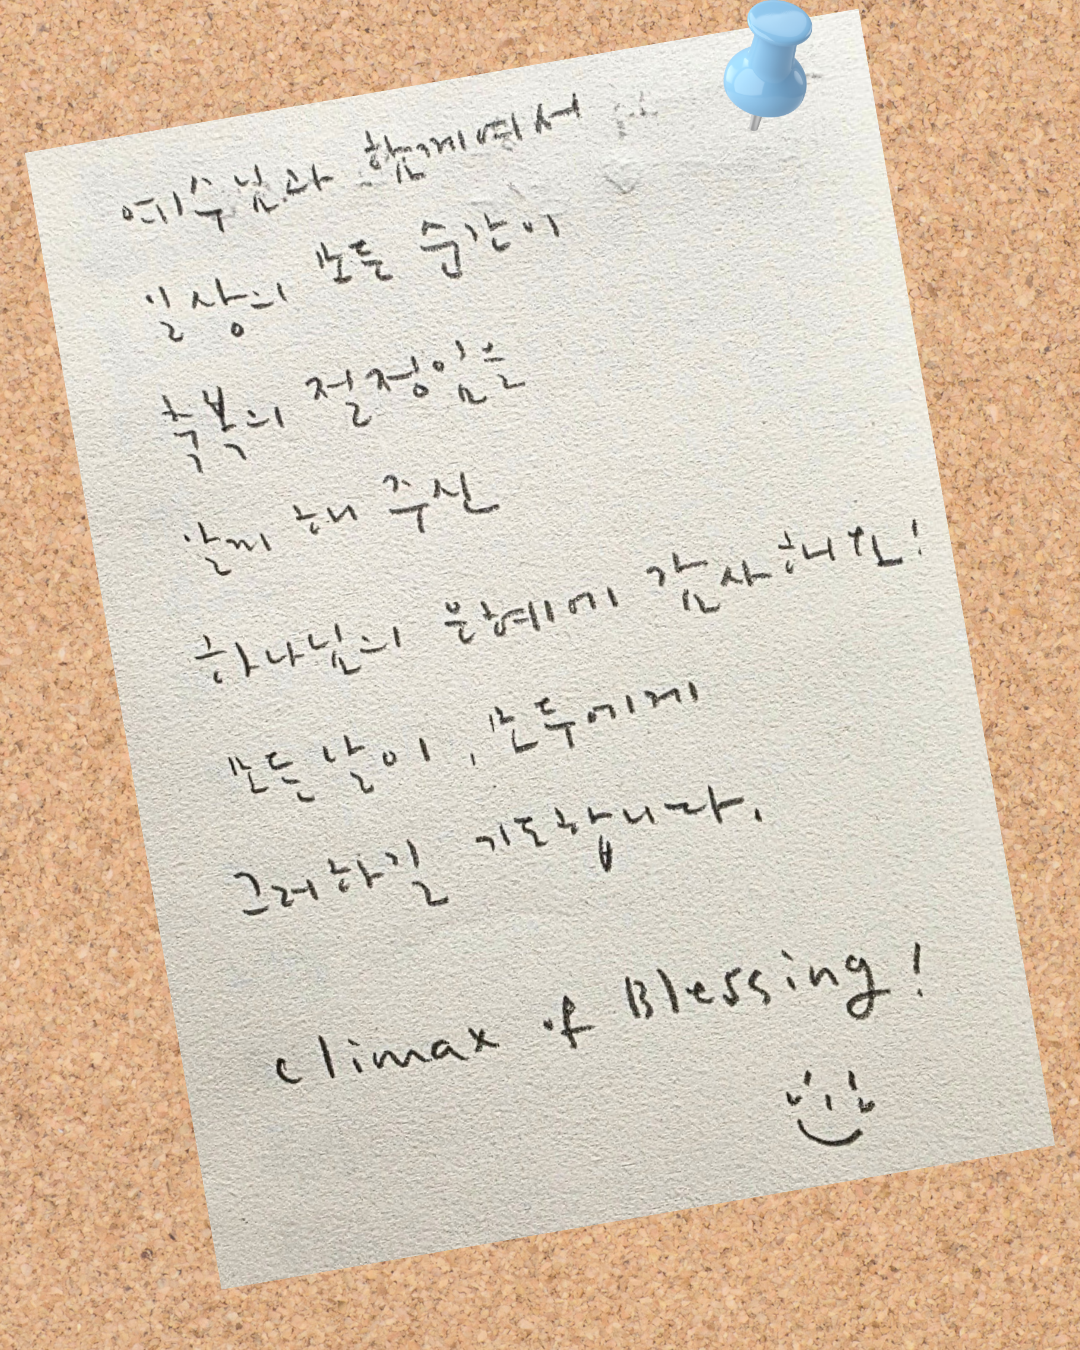 예수님과 함께여서
일상의 모든 순간이
축복의 절정임을
알게 해 주신
하나님의 은혜에 감사해요!
모든 날이, 모두에게
그러하길 기도합니다.
climax of Blessing!